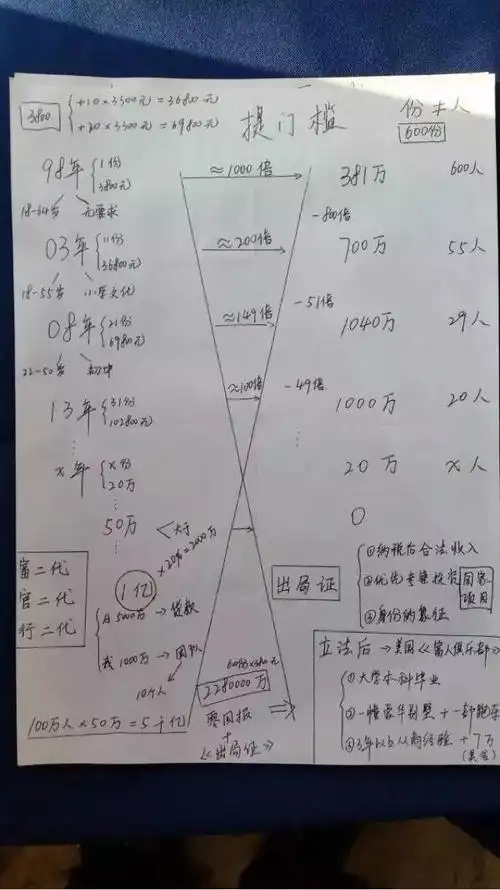 3800 { +10×3300元=36800元
+20×3300元=69800元
提门槛
份≠人
600份
98年 { 1份
3800元
≈1000倍
381万
600人
18-64岁 无要求
-800倍
03年 { 11份
36800元
≈200倍
700万
55人
18-55岁 小学文化
-51倍
08年 { 21份
69800元
≈149倍
1040万
29人
22-50岁 初中
≈100倍
-49倍
13年 { 31份
102800元
1000万
20人
x年 { x份
20万
20万
x人
50万
大于
0
×20%=2000万
富二代
官二代
行二代
1亿
出局证
①纳税后合法收入
②优先考察投资国家项目
③身份的象征
自5000万→贷款
我1000万→团队
10个人
600份×3800元
2280000万
要回报
+
《出局证》
100万人×50万=5千亿
立法后→美国《富人俱乐部》
①大学本科毕业
②一幢豪华别墅+一部跑车
③3年以上从商经验+7万
(美金)